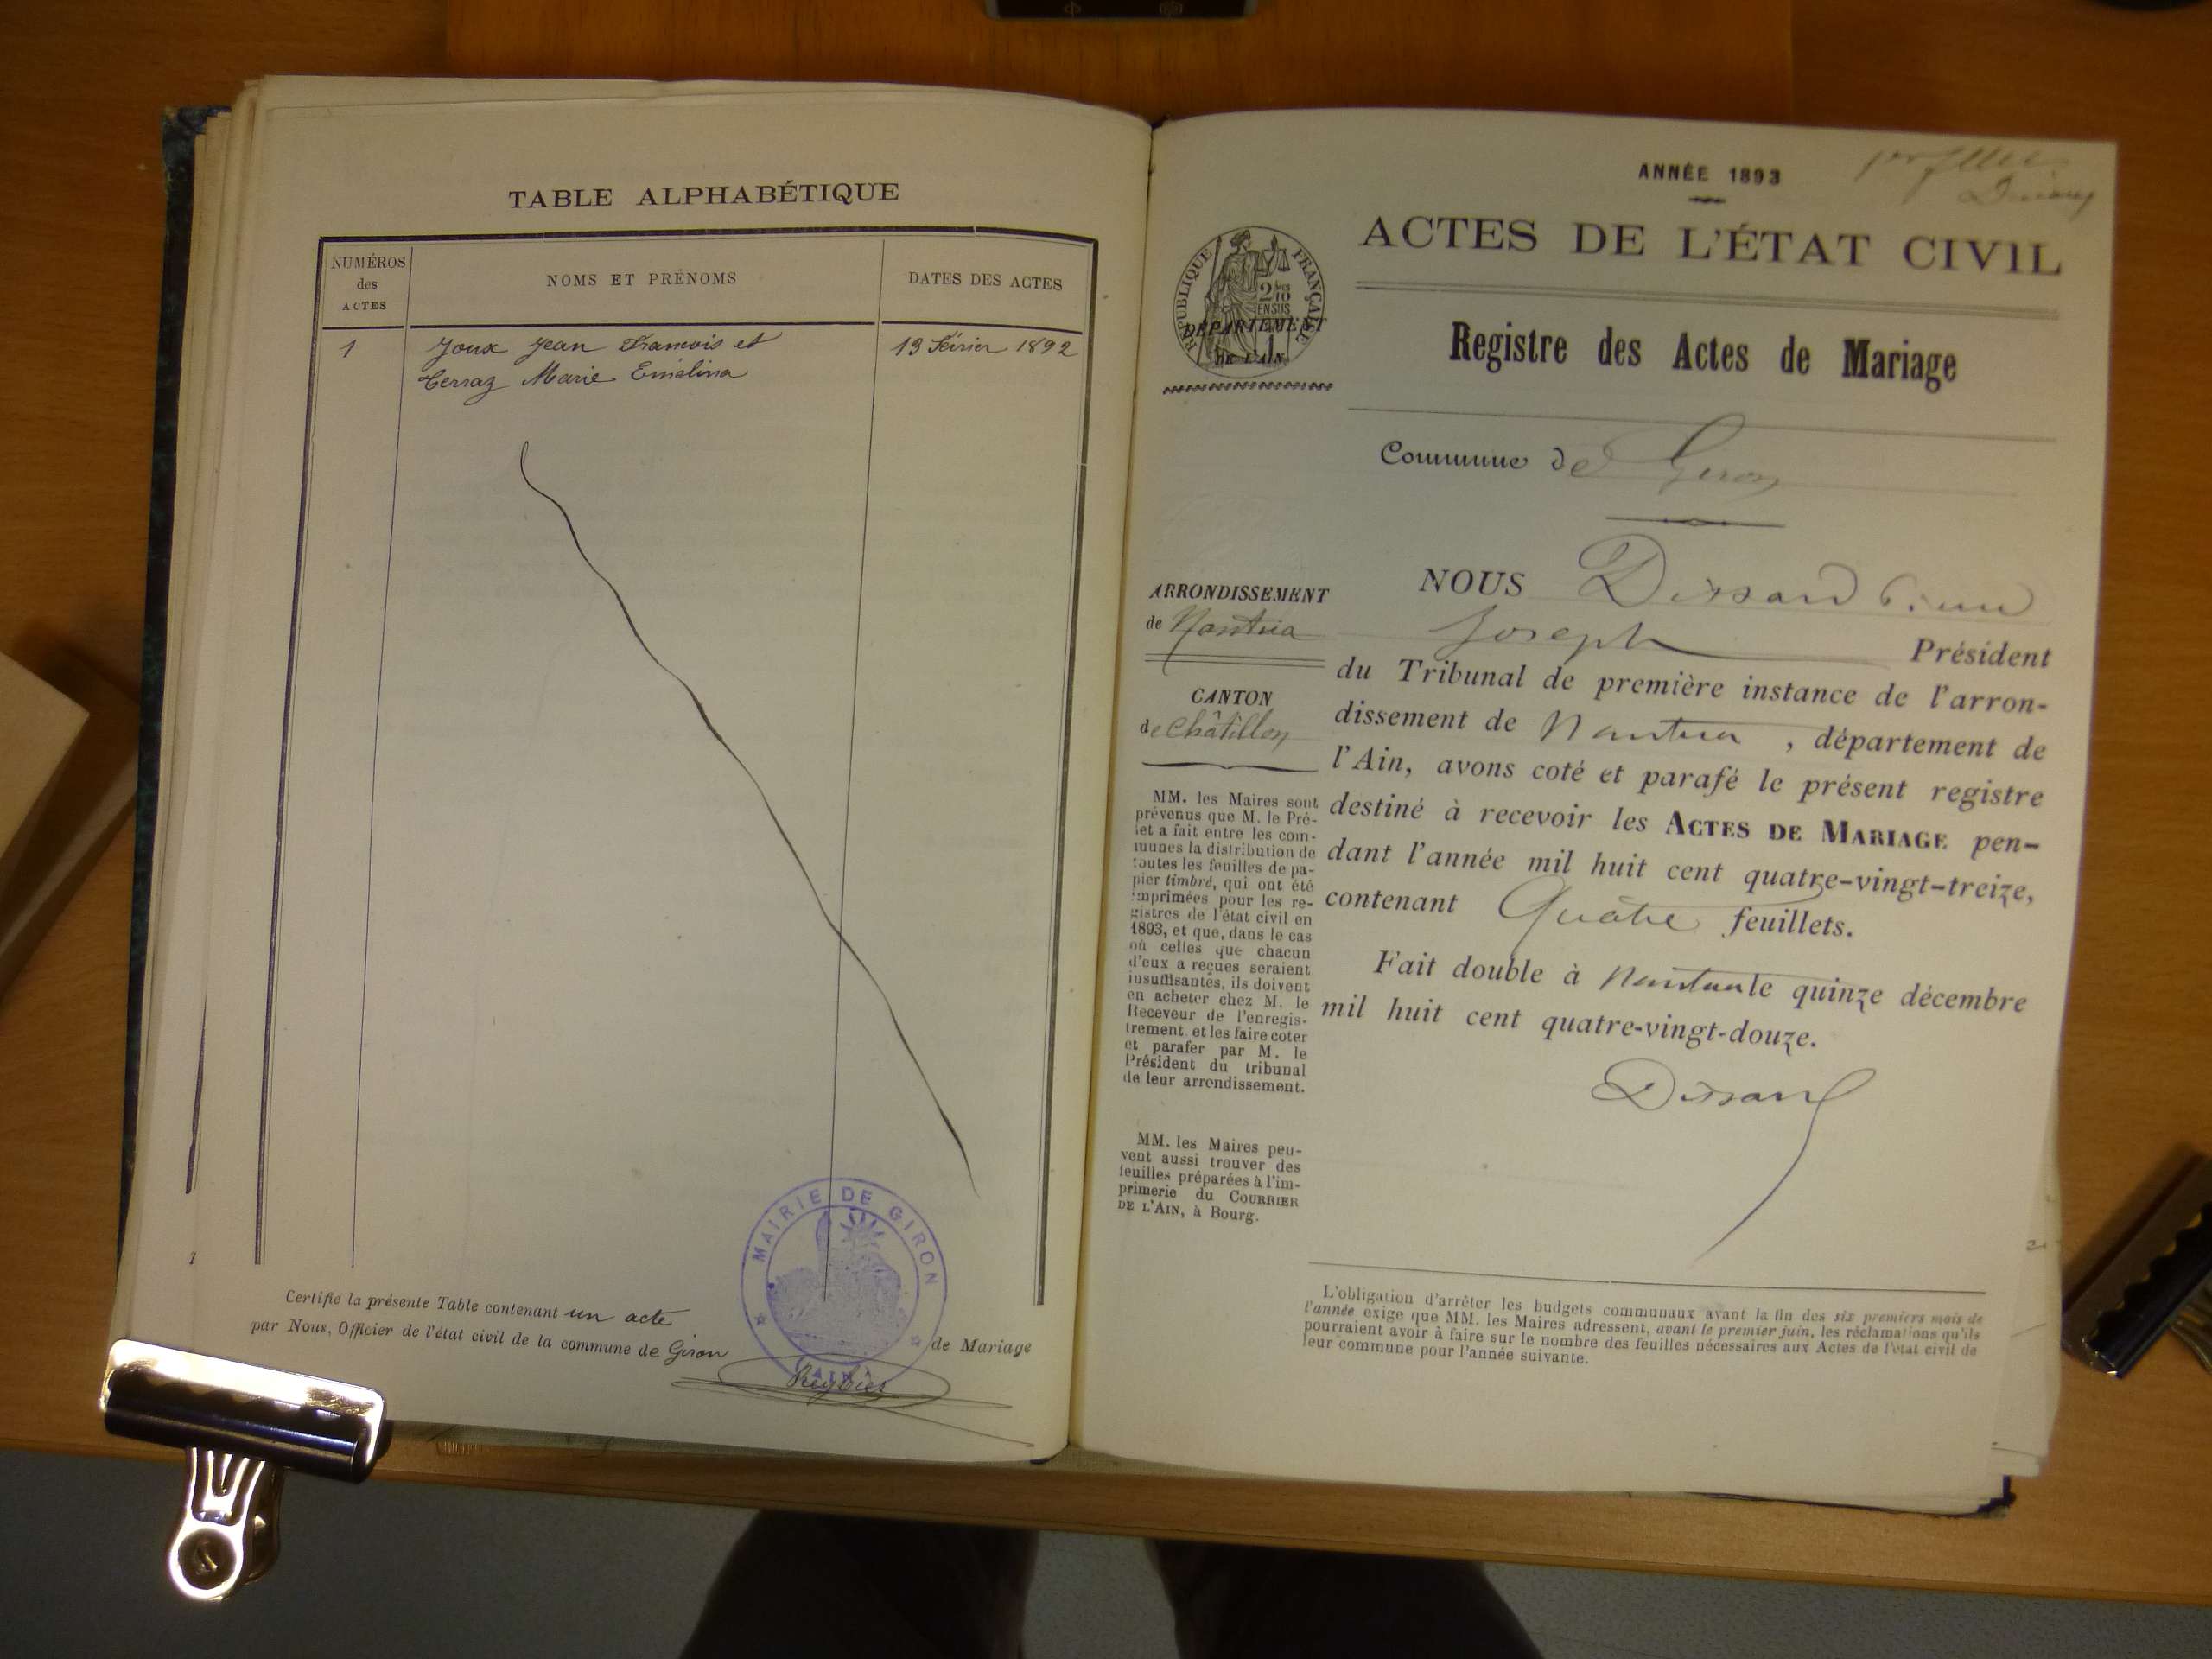 TABLE ALPHABÉTIQUE
NUMÉROS
des
ACTES
NOMS ET PRÉNOMS
DATES DES ACTES
1
Joux Jean François et
13 Février 1892
Terraz Marie Emélina
1
Certifie la présente Table contenant un acte
de Mariage
par Nous, Officier de l'état civil de la commune de Giron
MAIRIE DE GIRON
AIN
Reybier
ANNÉE 1893
ACTES DE L'ÉTAT CIVIL
RÉPUBLIQUE FRANÇAISE
2/10
EN SUS
DÉPARTEMENT
DE L'AIN
Registre des Actes de Mariage
Commune de Giron
ARRONDISSEMENT
de Nantua
CANTON
de Châtillon
MM. les Maires sont
prévenus que M. le Pré-
fet a fait entre les com-
munes la distribution de
toutes les feuilles de pa-
pier timbré, qui ont été
imprimées pour les re-
gistres de l'état civil en
1893, et que, dans le cas
où celles que chacun
d'eux a reçues seraient
insuffisantes, ils doivent
en acheter chez M. le
Receveur de l'enregis-
trement et les faire coter
et parafer par M. le
Président du tribunal
de leur arrondissement.
MM. les Maires peu-
vent aussi trouver des
feuilles préparées à l'im-
primerie du COURRIER
DE L'AIN, à Bourg.
NOUS Dissard
Joseph Président
du Tribunal de première instance de l'arron-
dissement de Nantua, département de
l'Ain, avons coté et parafé le présent registre
destiné à recevoir les ACTES DE MARIAGE pen-
dant l'année mil huit cent quatre-vingt-treize,
contenant Quatre feuillets.
Fait double à Nantua le quinze décembre
mil huit cent quatre-vingt-douze.
Dissard
L'obligation d'arrêter les budgets communaux avant la fin des six premiers mois de
l'année exige que MM. les Maires adressent, avant le premier juin, les réclamations qu'ils
pourraient avoir à faire sur le nombre des feuilles nécessaires aux Actes de l'état civil de
leur commune pour l'année suivante.